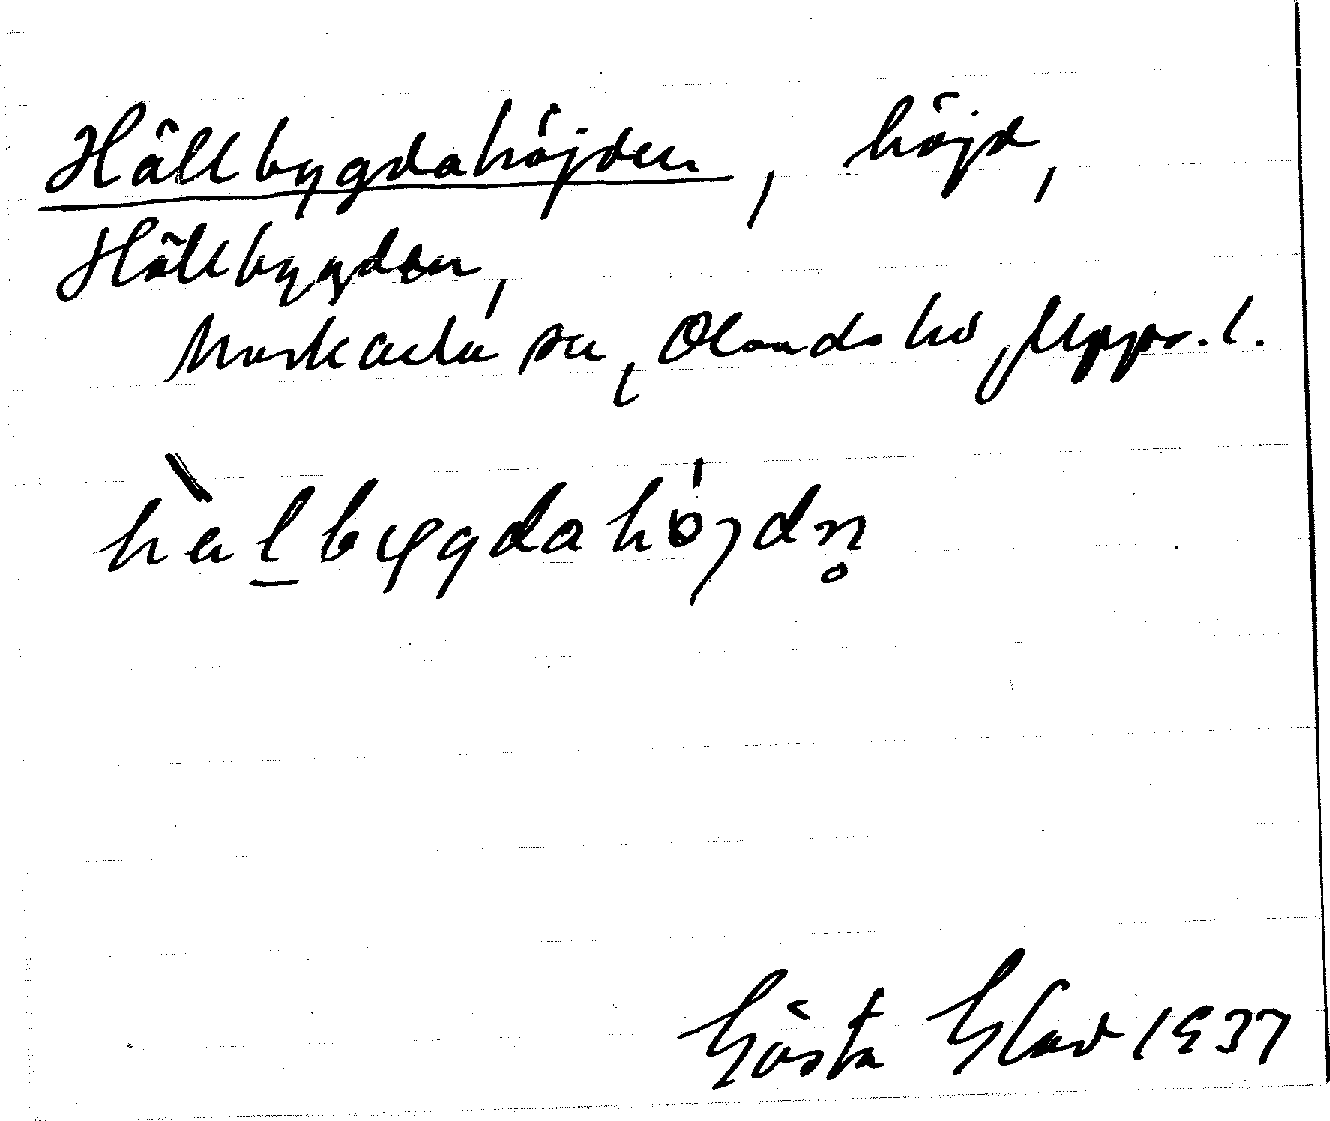 Hällbygdahöjden, höjd,
Hällbygden,
Morkarla sn, Olands hd, Uppr. l.
hälbygdahöjdn̥
Gösta Glad 1937